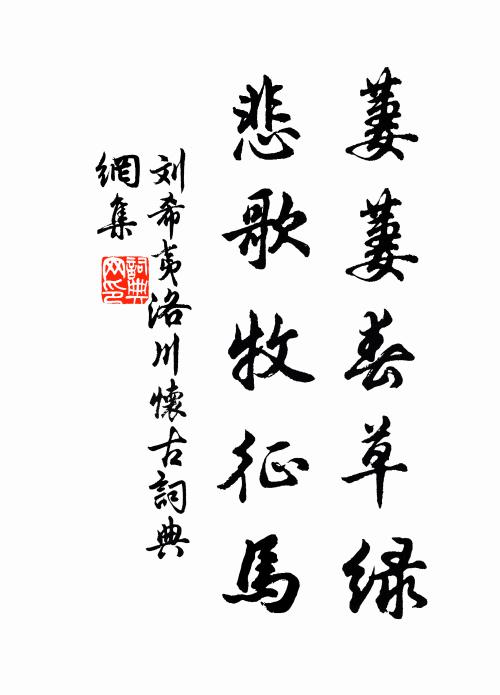 萋萋春草绿
悲歌牧征马
刘希夷洛川懷古詞典
網集
詞典
网印